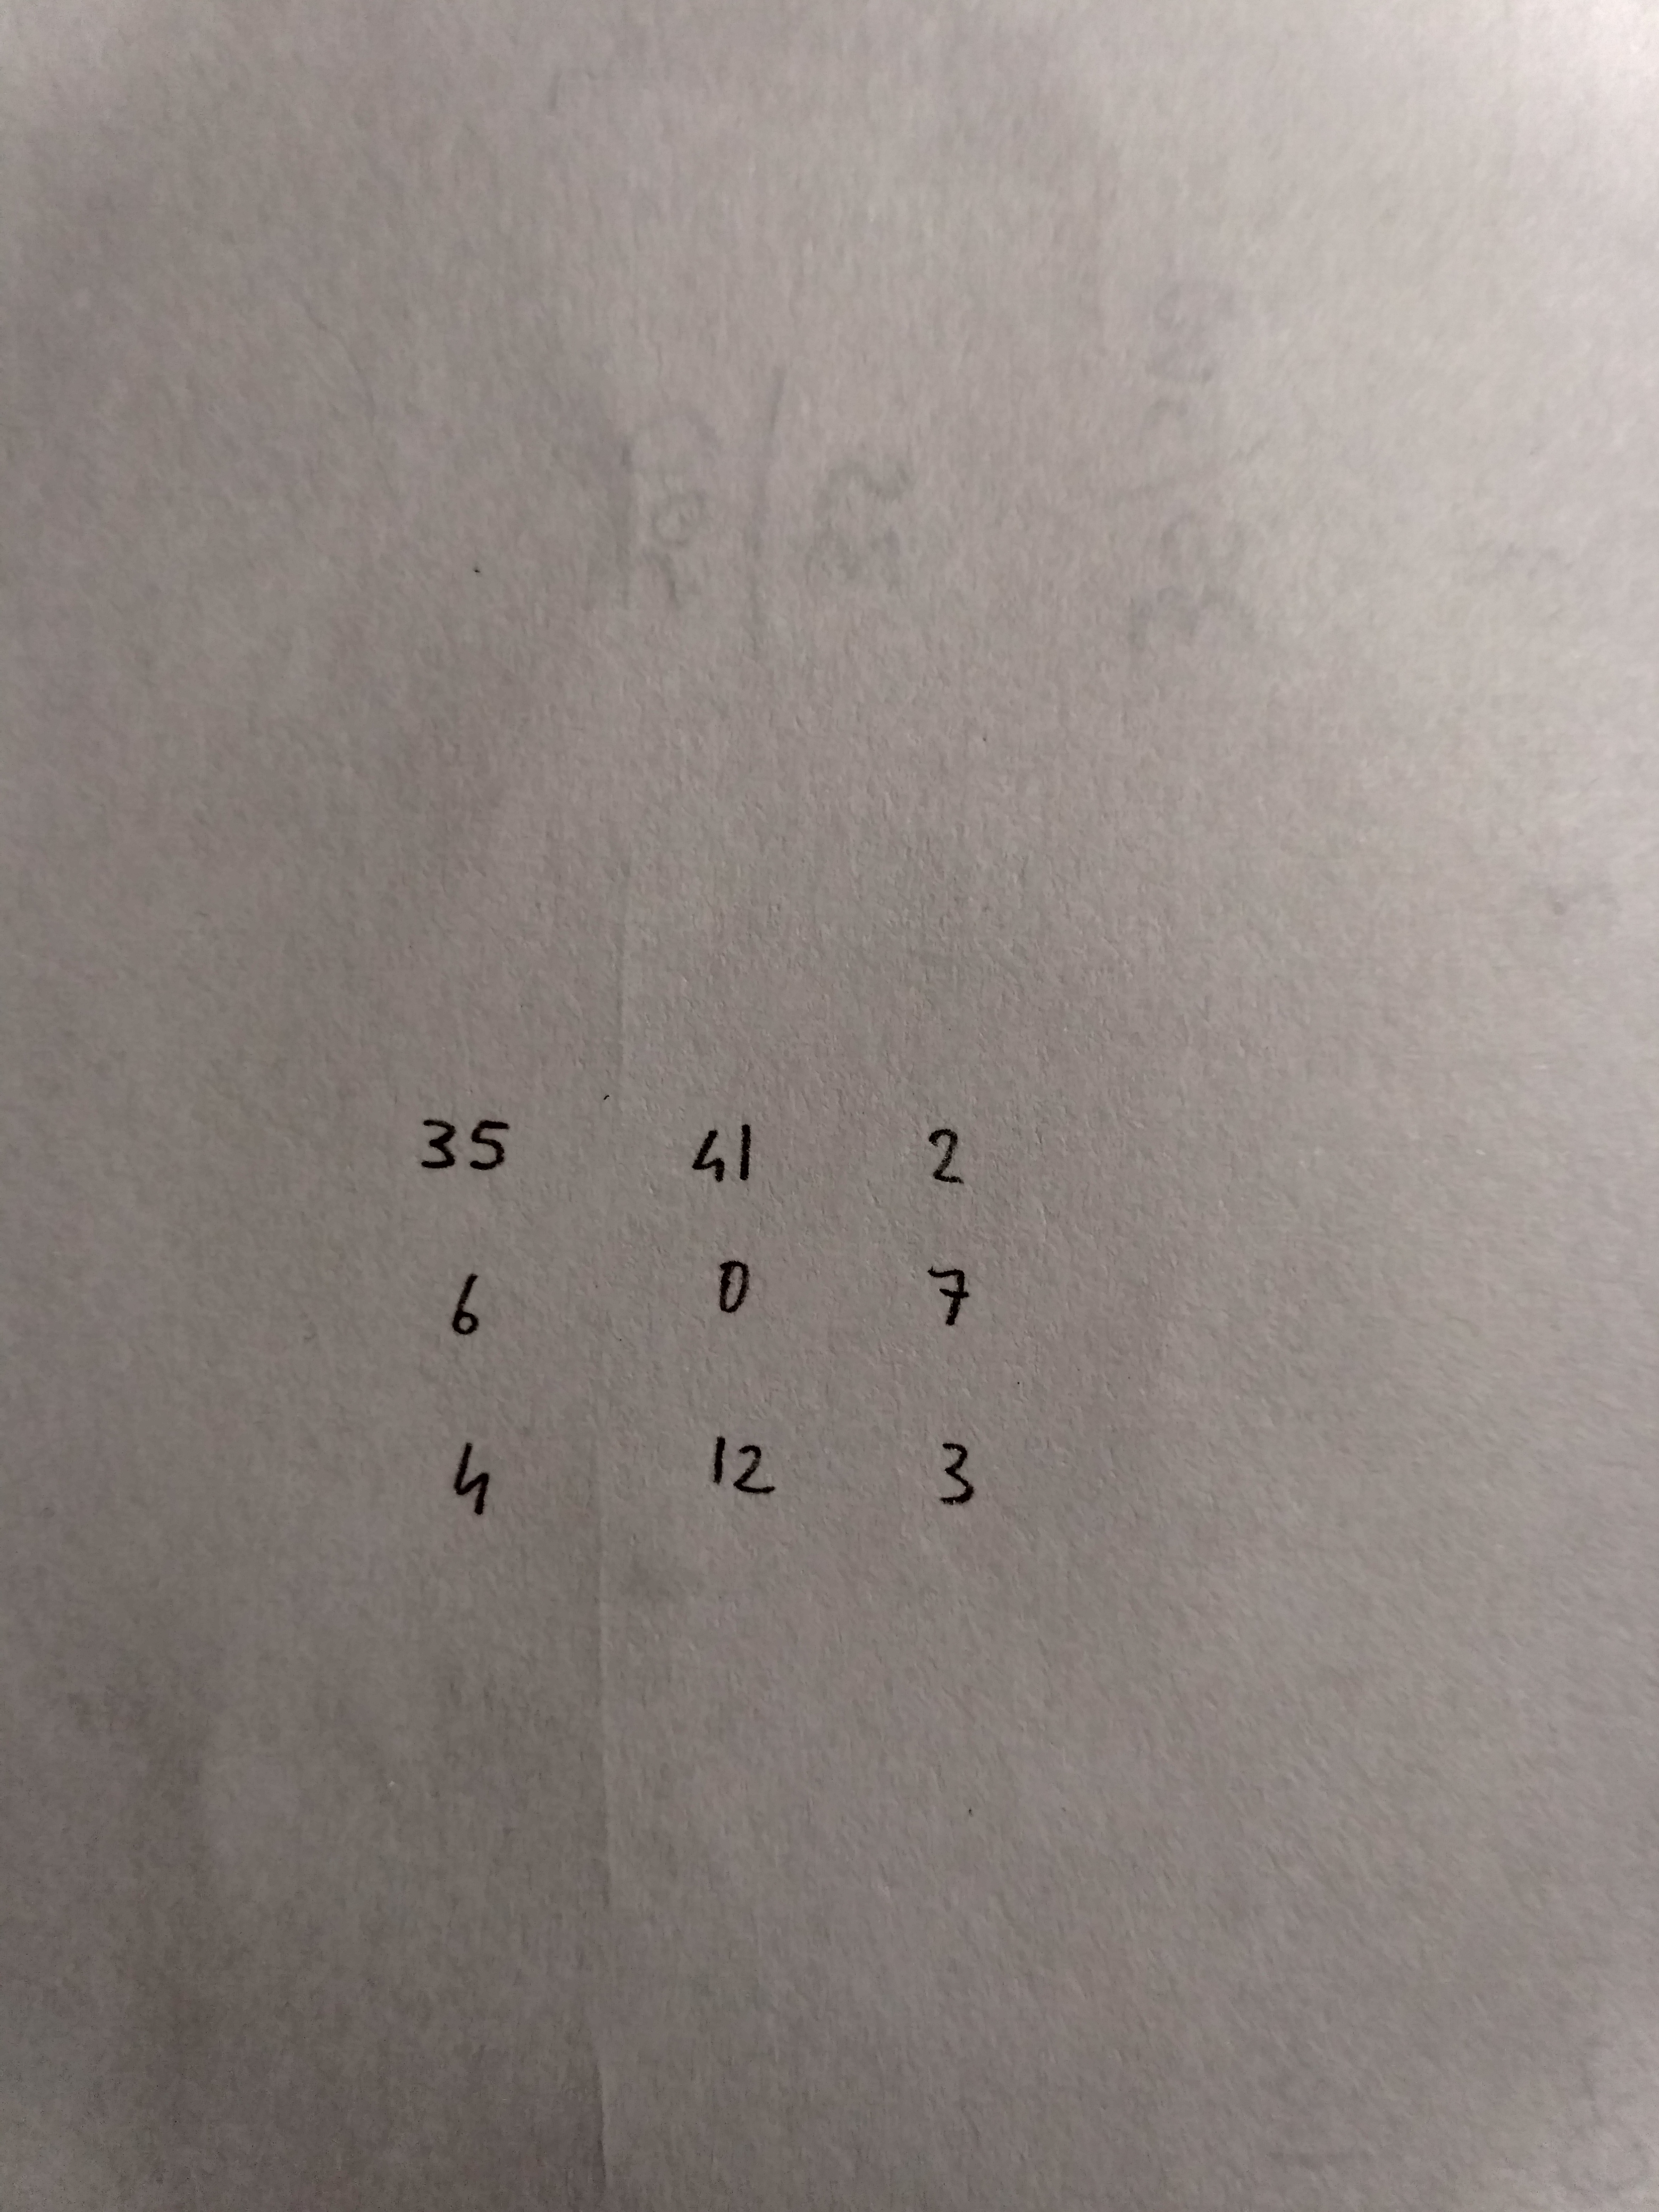 35 41 2
6 0 7
4 12 3